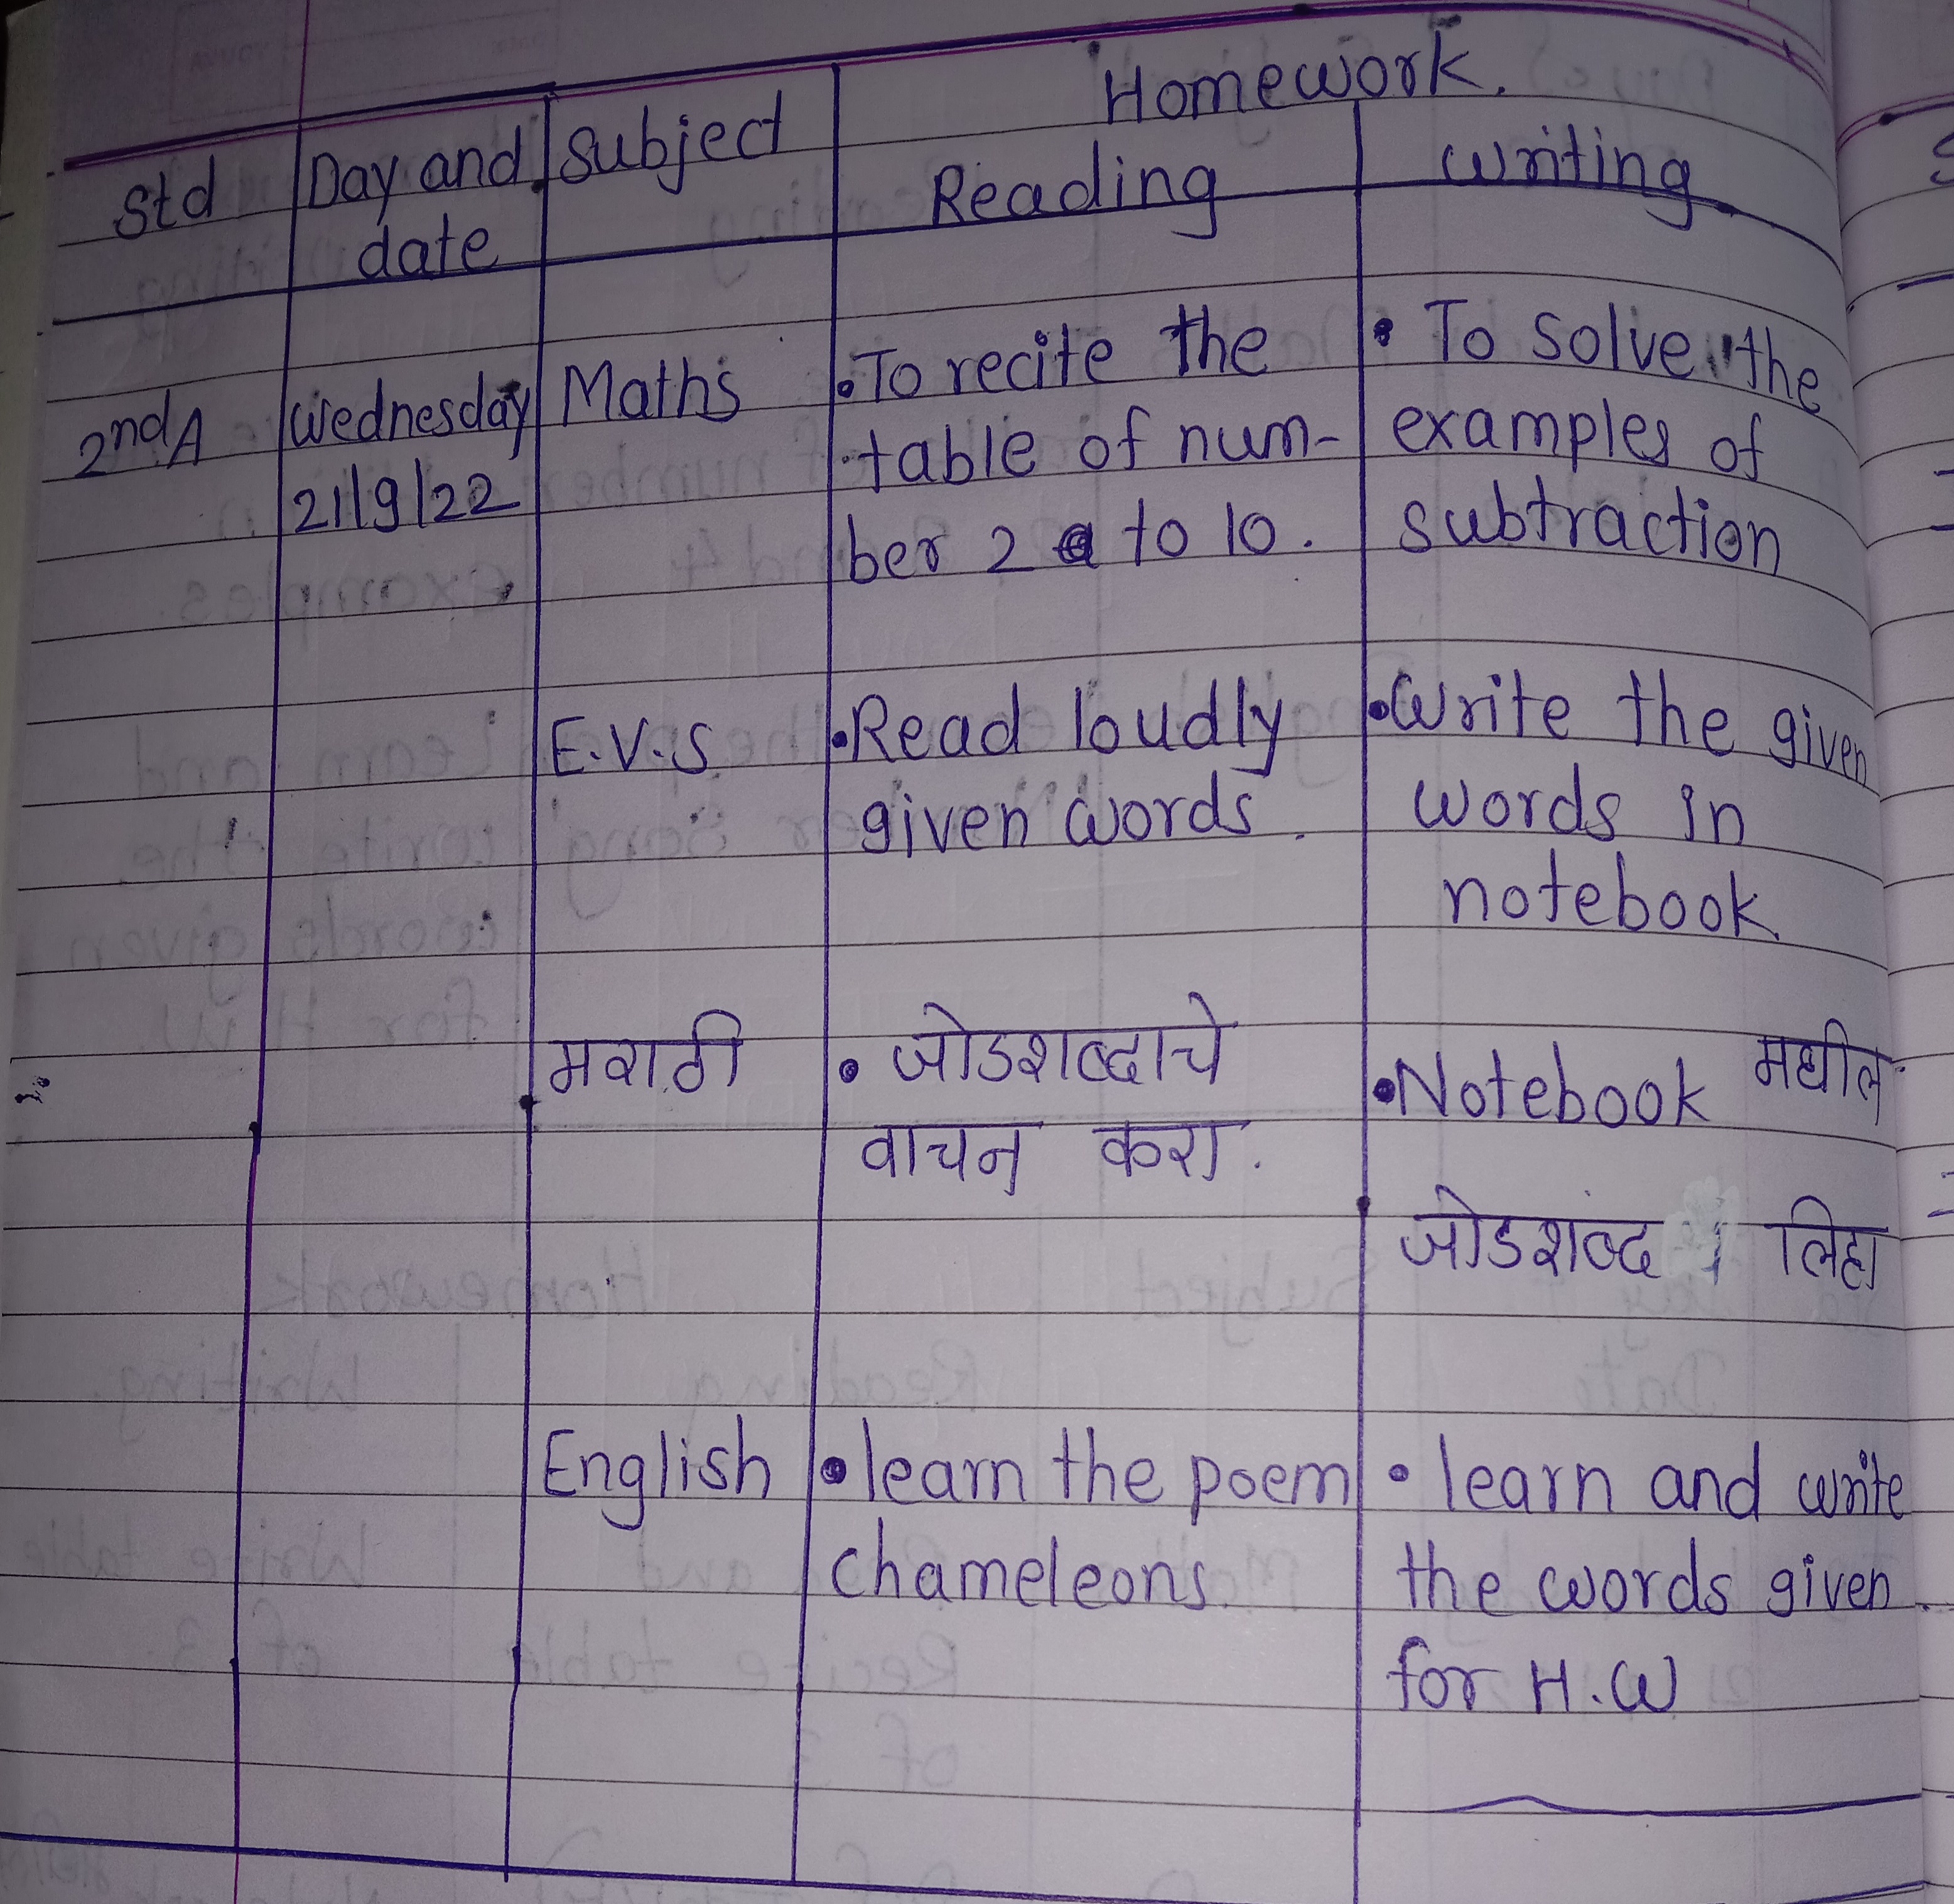 Homework.
Std Day and Subject Reading Writing
date
2nd A Wednesday Maths • To recite the • To solve the
21/9/22 table of num- examples of
ber 2 to 10. subtraction
E.V.S • Read loudly • Write the given
given words. words in
notebook.
मराठी • जोडशब्दाचे • Notebook मधील
वाचन करा.
जोडशब्द लिहा
English • learn the poem • learn and write
chameleons. the words given
for H.W